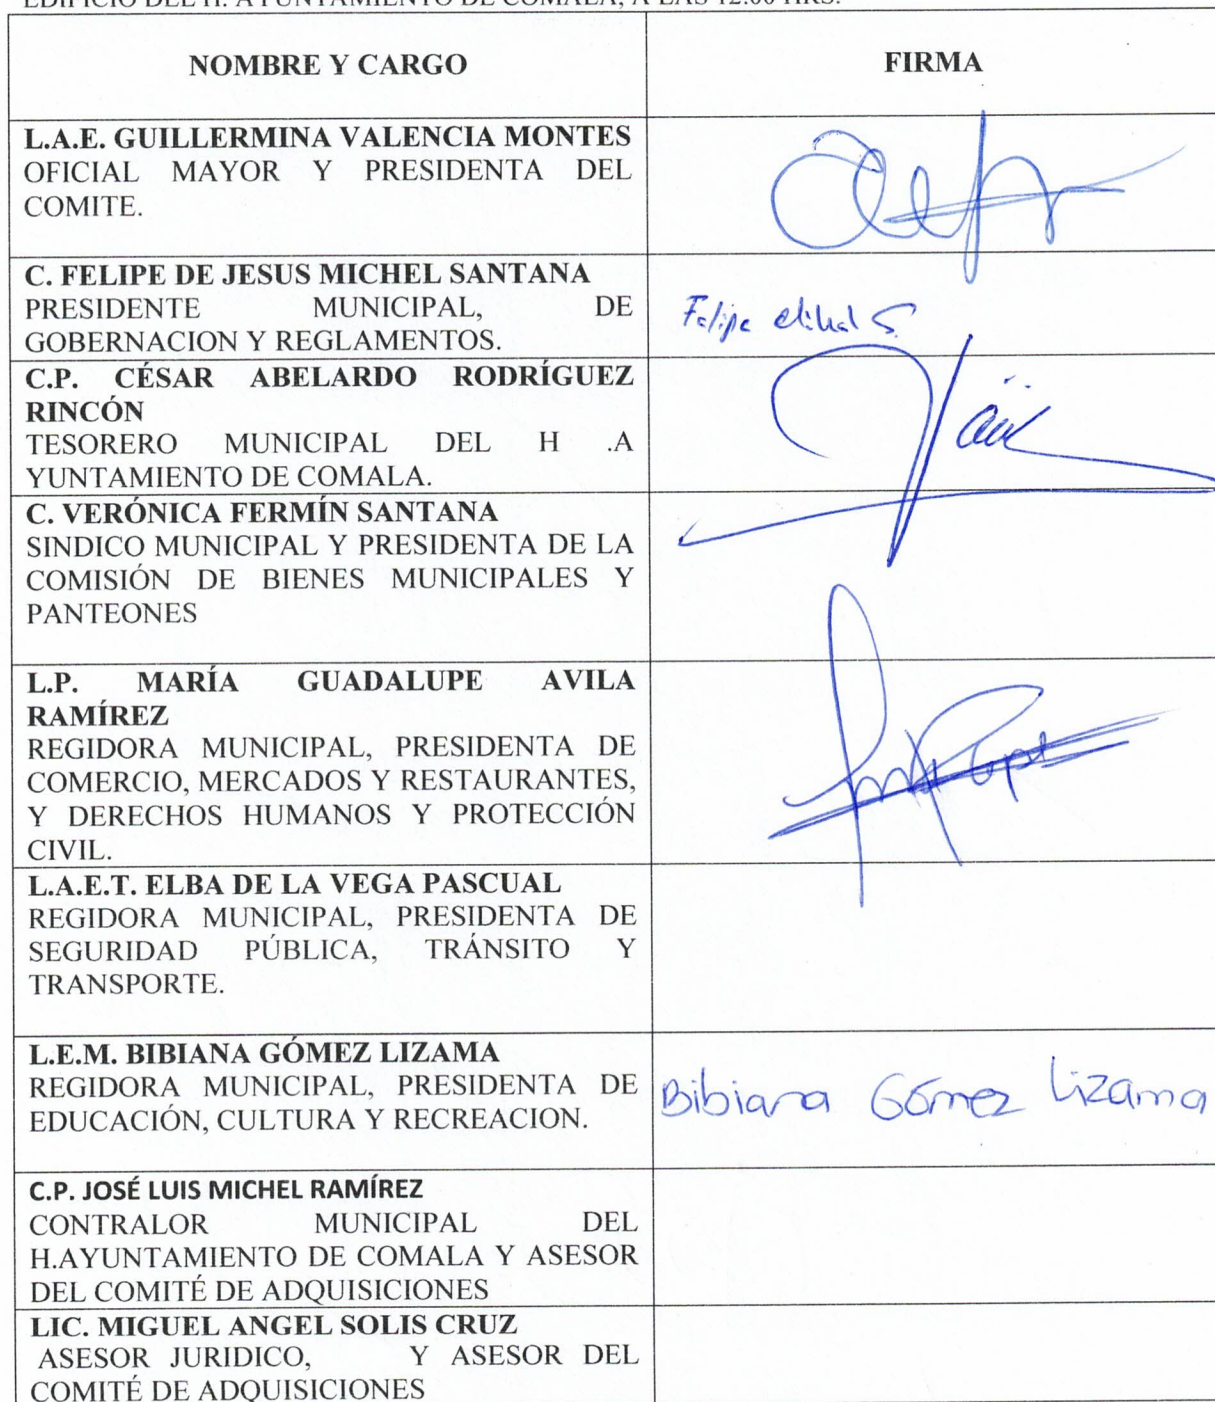 EDIFICIO DEL H. AYUNTAMIENTO DE COMALA, A LAS 12:00 HRS.
NOMBRE Y CARGO
FIRMA
L.A.E. GUILLERMINA VALENCIA MONTES
OFICIAL MAYOR Y PRESIDENTA DEL
COMITE.
C. FELIPE DE JESUS MICHEL SANTANA
PRESIDENTE MUNICIPAL, DE
GOBERNACION Y REGLAMENTOS.
Felipe
C.P. CÉSAR ABELARDO RODRÍGUEZ
RINCÓN
TESORERO MUNICIPAL DEL H .A
YUNTAMIENTO DE COMALA.
C. VERÓNICA FERMÍN SANTANA
SINDICO MUNICIPAL Y PRESIDENTA DE LA
COMISIÓN DE BIENES MUNICIPALES Y
PANTEONES
L.P. MARÍA GUADALUPE AVILA
RAMÍREZ
REGIDORA MUNICIPAL, PRESIDENTA DE
COMERCIO, MERCADOS Y RESTAURANTES,
Y DERECHOS HUMANOS Y PROTECCIÓN
CIVIL.
L.A.E.T. ELBA DE LA VEGA PASCUAL
REGIDORA MUNICIPAL, PRESIDENTA DE
SEGURIDAD PÚBLICA, TRÁNSITO Y
TRANSPORTE.
L.E.M. BIBIANA GÓMEZ LIZAMA
REGIDORA MUNICIPAL, PRESIDENTA DE
EDUCACIÓN, CULTURA Y RECREACION.
Bibiana Gómez Lizama
C.P. JOSÉ LUIS MICHEL RAMÍREZ
CONTRALOR MUNICIPAL DEL
H.AYUNTAMIENTO DE COMALA Y ASESOR
DEL COMITÉ DE ADQUISICIONES
LIC. MIGUEL ANGEL SOLIS CRUZ
ASESOR JURIDICO, Y ASESOR DEL
COMITÉ DE ADQUISICIONES